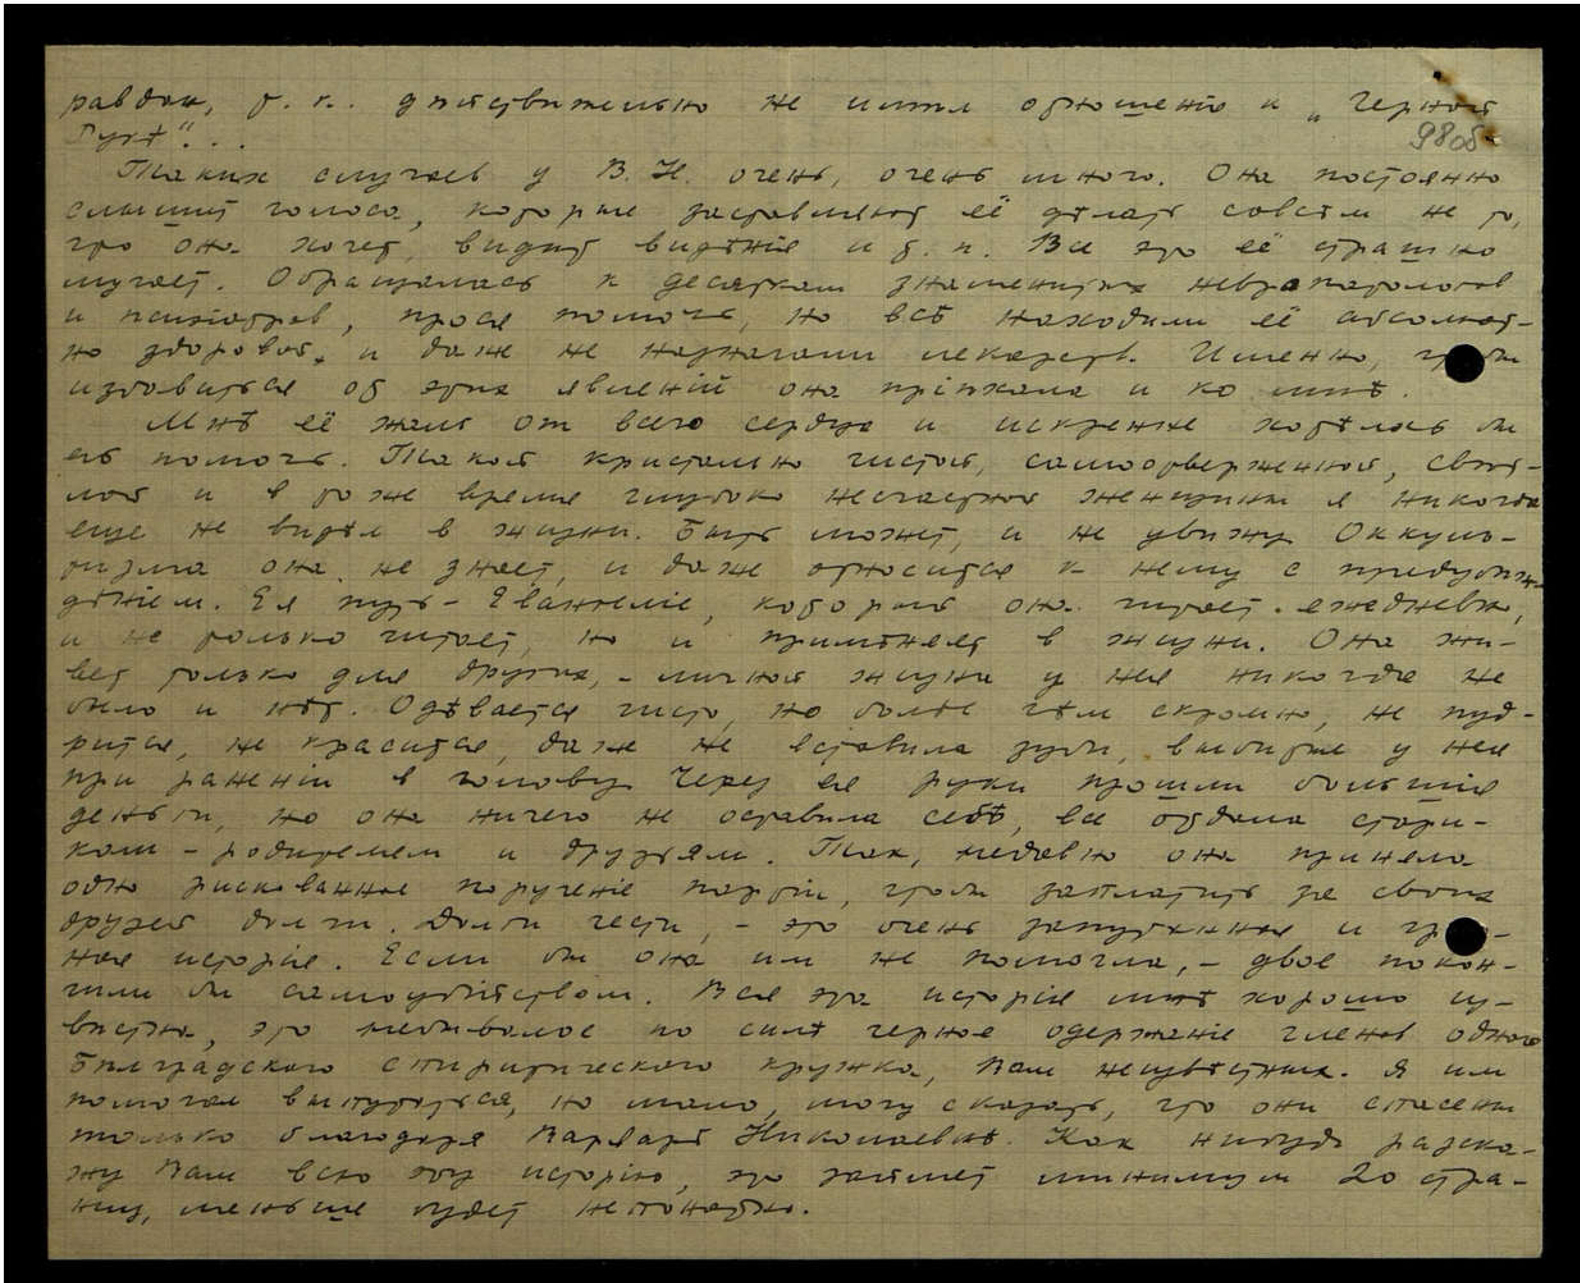 равдан, т. к. дѣйствительно не имѣл отношенія к „Черной
Рукѣ"...
98об
Таких случаев у В. Н. очень, очень много. Она постоянно
слышит голоса, которые заставляют её дѣлать совсѣм не то,
что она хочет, видит видѣнія и т. п. Все это её страшно
мучает. Обращалась к десяткам знаменитых невропатологов
и психіатров, прося помочь, но всѣ находили её абсолют-
но здоровой, и даже не назначали лекарств. Именно, чтобы
избавиться от этих явленій она пріѣхала и ко мнѣ.
Мнѣ её жаль от всего сердца и искренне хотѣлось бы
ей помочь. Такой кристально чистой, самоотверженной, свѣт-
лой и в то же время глубоко несчастной женщины я никогда
еще не видѣл в жизни. Быть может, и не увижу. Оккуль-
тизма она не знает, и даже относится к нему с предубѣж-
дѣніем. Ея путь - Евангеліе, которое она читает ежедневно,
и не только читает, но и примѣняет в жизни. Она жи-
вет только для других, - личной жизни у нея никогда не
было и нѣт. Одѣвается чисто, но болѣе чѣм скромно, не пуд-
рится, не красится, даже не вставила зубы, выбитые у нея
при раненіи в голову. Через ея руки прошли большія
деньги, но она ничего не оставила себѣ, все отдала стари-
кам - родителям и друзьям. Так, недавно она приняла
одно рискованное порученіе партіи, чтобы заплатить за своих
друзей долги. Долги чести, - это очень запутанная и
ная исторія. Если бы она им не помогла, - двое покон-
чили бы самоубійством. Вся эта исторія мнѣ хорошо из-
вѣстна, это небывалое по силѣ черное одержаніе членов одного
Бѣлградского спиритического кружка, Вам неизвѣстных. Я им
помогал выпутаться, но мало, могу сказать, что они спасены
только благодаря Варварѣ Николаевнѣ. Как нибудь разска-
жу Вам всю эту исторію, это займет минимум 20 стра-
ниц, меньше будет непонятно.